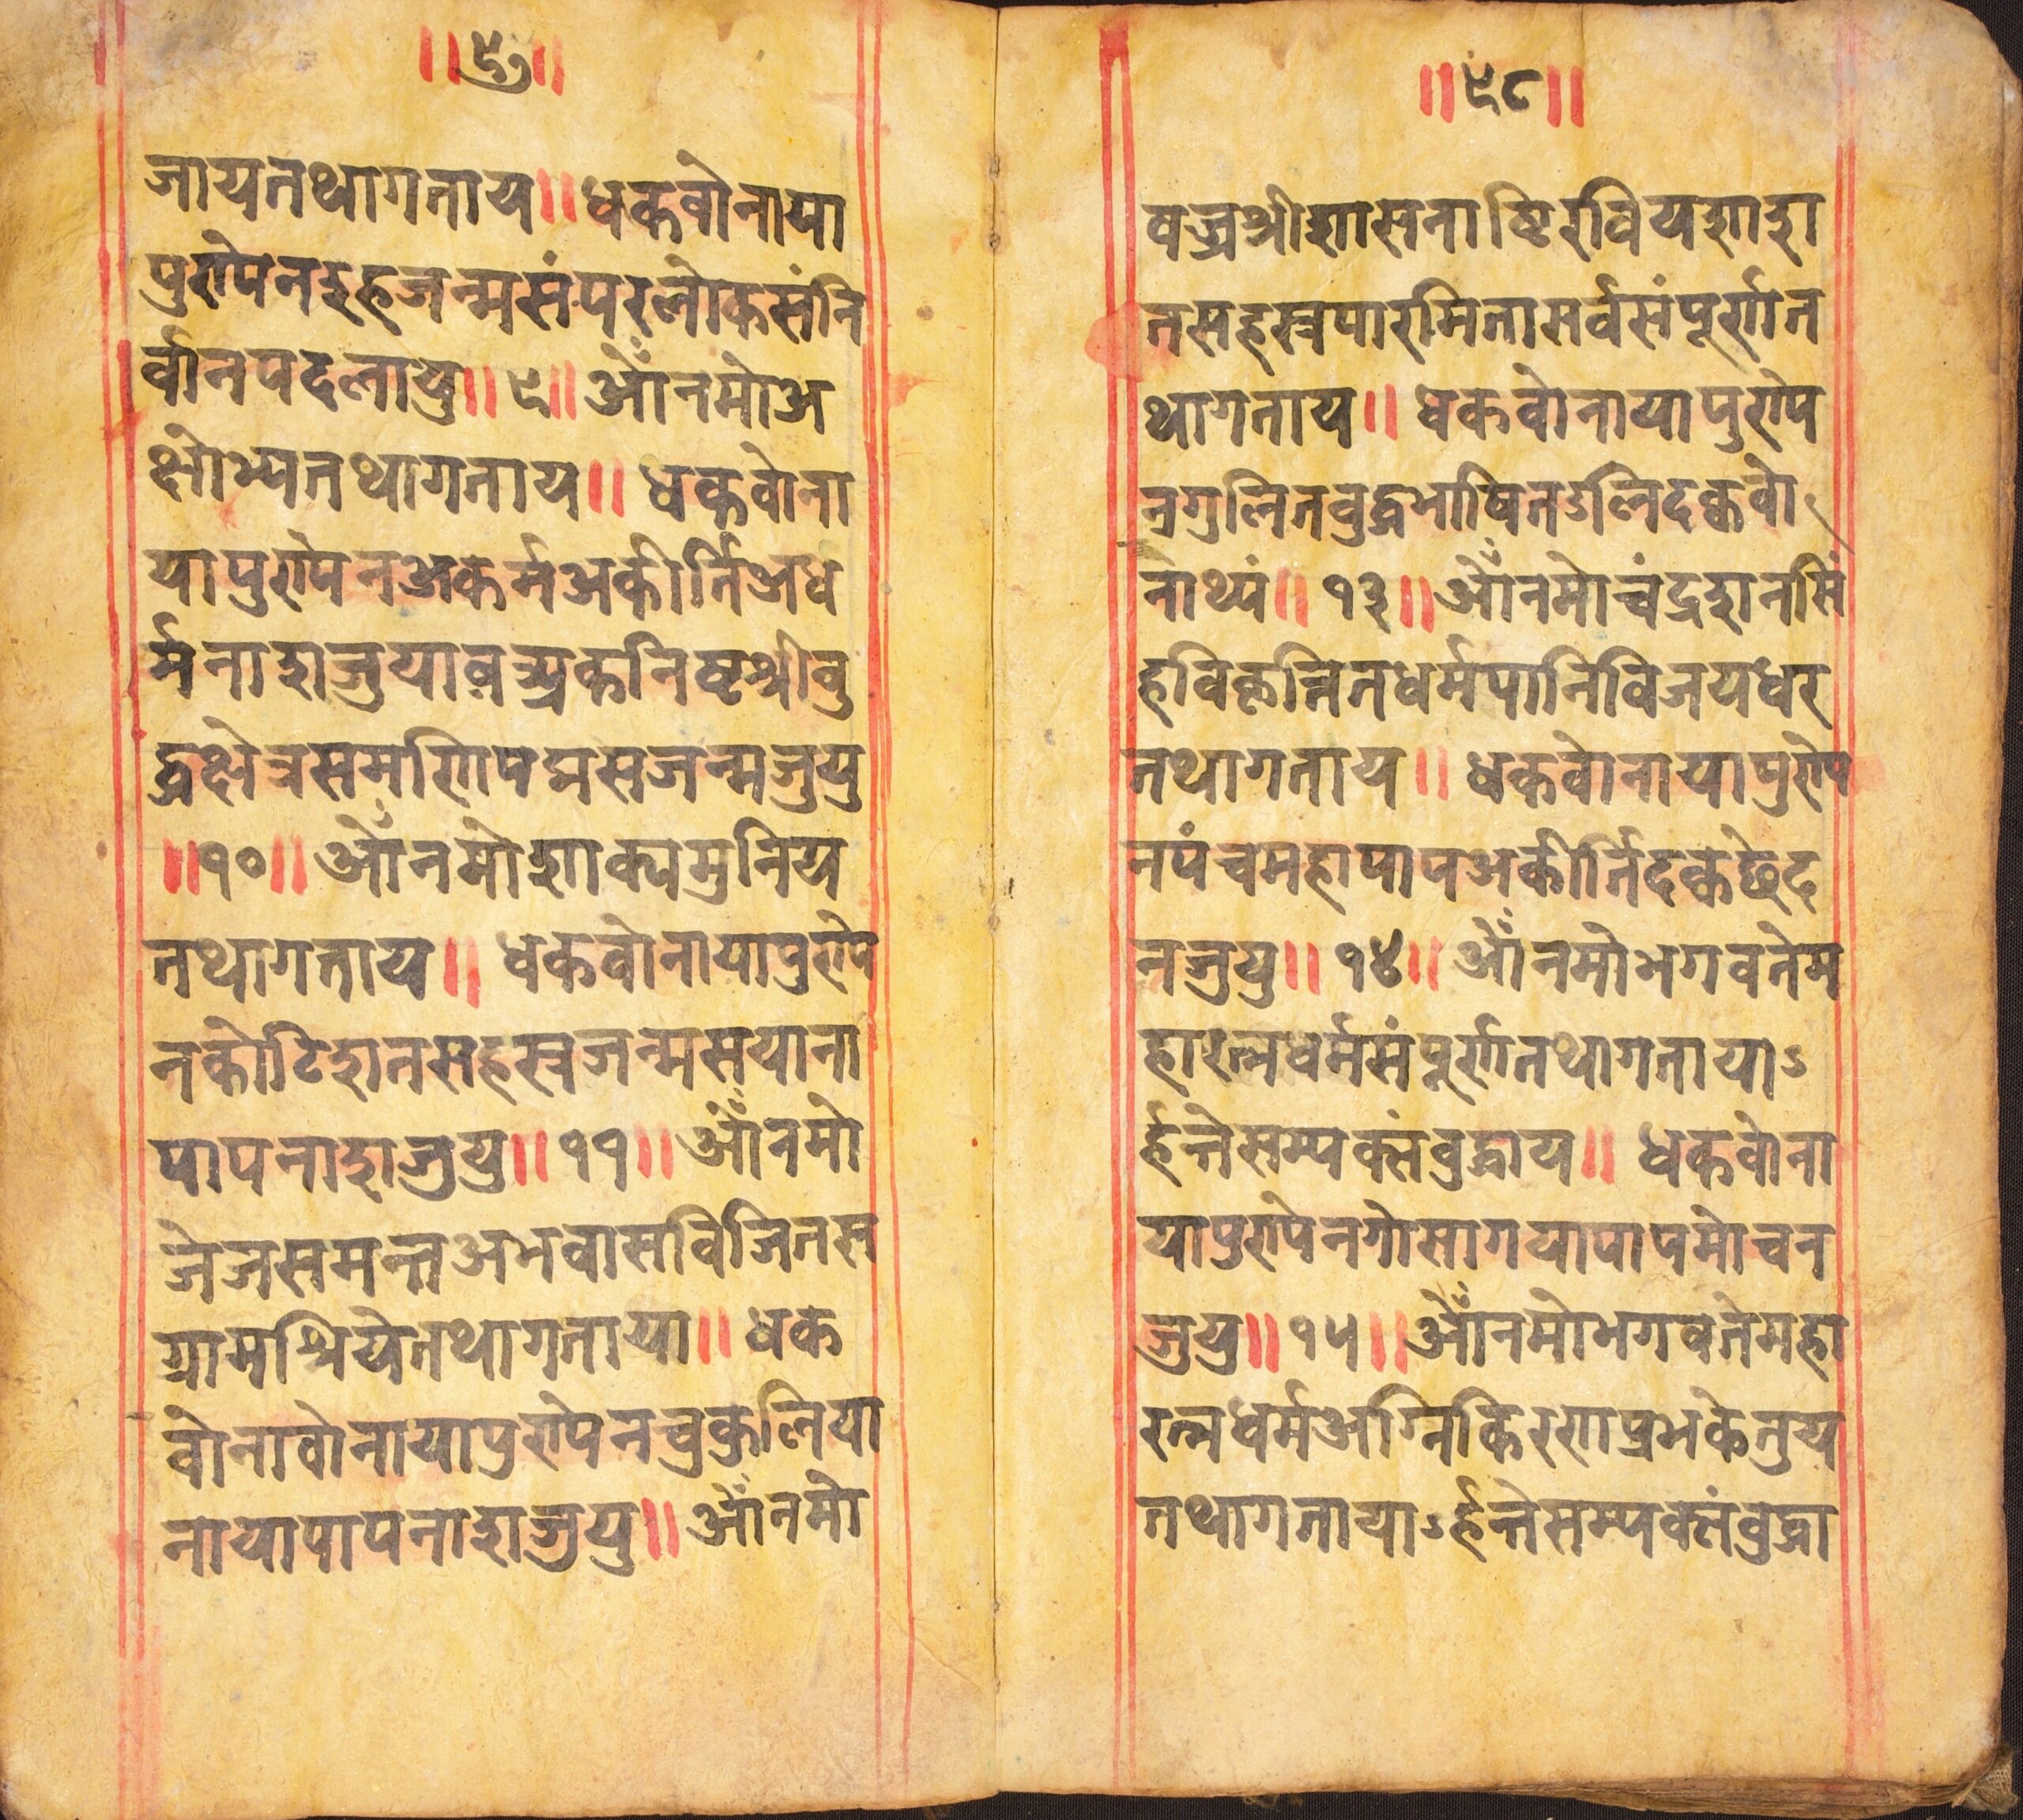 ॥९७॥
जायतथागताय॥धकवोनाया
पुरुोपेनइहजन्मसंपरलोकसंनि
र्वानपदलायु॥९॥ओँनमोअ
क्षोभ्यतथागताय॥धकवोना
यापुरुोपेनअकर्मअकीर्तिअध
र्मनाशजुयाव्रअकनिष्टश्रीबु
द्धक्षेत्रसमणिपद्मसजन्मजुयु
॥१०॥ओँनमोशाक्यमुनिय
तथागताय॥धकवोनायापुरुोपे
नकोटिशतसहस्रजन्मसयाना
पापनाशजुयु॥११॥ओँनमो
जेजसमन्तअभवासविजितस
ग्रामश्रियेतथागताया॥धक
वोनावोनायापुरुोपेनचुकुलिया
नायापापनाशजुयु॥ओँनमो
॥९८॥
वज्रश्रीशासनाष्टिरवियशाशा
तसहस्रपारमितासर्वसंपूर्णत
थागताय॥धकवोनायापुरुोपे
नगुलितबुद्धभाषितऽलिदक्ववो
नाथ्यं॥१३॥ओँनमोचंद्रशनसिं
हविक्तन्नितधर्मपानिविजयधर
तथागताय॥धकवोनायापुरुोपे
नपंचमहापापअकीर्तिदक्वछेद
नजुयु॥१४॥ओँनमोभगवतेम
हारत्नधर्मसंपूर्णतथागतायाऽ
र्हन्तेसम्यक्संबुद्धाय॥धकवोना
यापुरुोपेनगोसागयापापमोचन
जुयु॥१५॥ओँनमोभगवतेमहा
रत्नधर्मअग्निकिरणप्रभकेतुय
तथागतायाऽर्हन्तेसम्यक्संबुद्धा